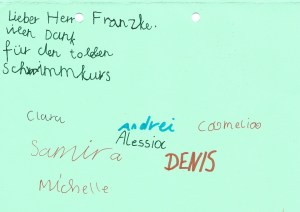 Lieber Herr Franzke.
vielen Dank
für den tollen
Schwimmkurs
Clara
andrei
Cosmelioo
Alessia
Samira
DENIS
Michelle